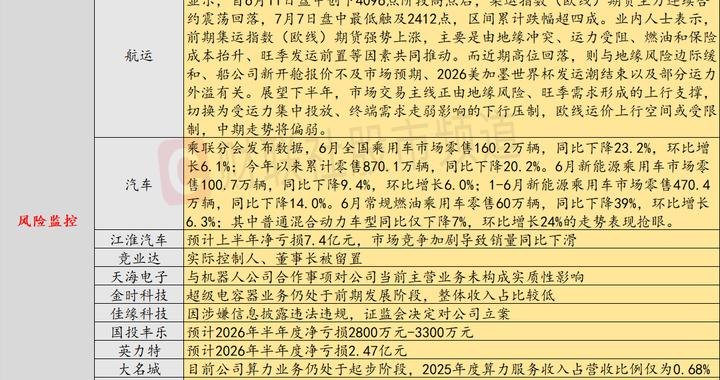 显示，自6月11日盘中创下4096点阶段高点后，集运指数（欧线）期货主力连续合
约震荡回落，7月7日盘中最低触及2412点，区间累计跌幅超四成。业内人士表示，
前期集运指数（欧线）期货强势上涨，主要是由地缘冲突、运力受阻、燃油和保险
成本抬升、旺季发运前置等因素共同推动。而近期高位回落，则与地缘风险边际缓
航运
和、船公司新开舱报价不及市场预期、2026美加墨世界杯发运潮结束以及部分运力
外溢有关。展望下半年，市场交易主线正由地缘风险、旺季需求形成的上行支撑，
切换为受运力集中投放、终端需求走弱影响的下行压制，欧线运价上行空间或受限
制，中期走势将偏弱。
乘联分会发布数据，6月全国乘用车市场零售160.2万辆，同比下降23.2%，环比增
长6.1%；今年以来累计零售870.1万辆，同比下降20.2%。6月新能源乘用车市场零
汽车
售100.7万辆，同比下降9.4%，环比增长6.0%；1-6月新能源乘用车市场零售470.4
万辆，同比下降14.0%。6月常规燃油乘用车零售60万辆，同比下降39%，环比增长
6.3%；其中普通混合动力车型同比仅下降7%，环比增长24%的走势表现抢眼。
风险监控
江淮汽车 预计上半年净亏损7.4亿元，市场竞争加剧导致销量同比下滑
竞业达 实际控制人、董事长被留置
天海电子 与机器人公司合作事项对公司当前主营业务未构成实质性影响
金时科技 超级电容器业务仍处于前期发展阶段，整体收入占比较低
佳缘科技 因涉嫌信息披露违法违规，证监会决定对公司立案
国投丰乐 预计2026年半年度净亏损2800万元-3300万元
英力特 预计2026年半年度净亏损2.47亿元
大名城 目前公司算力业务仍处于起步阶段，2025年度算力服务收入占营收比例仅为0.68%